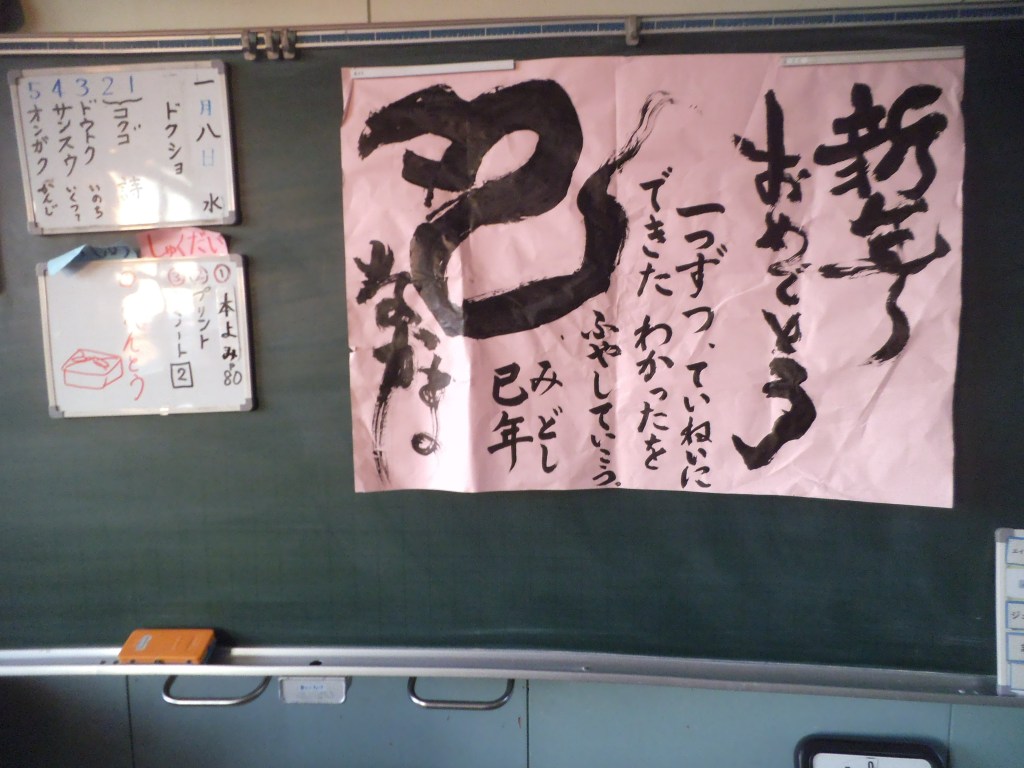 新年
おめでとう
一つずつ、ていねいに
できた わかったを
ふやしていこう。
みどし
巳年
巳
一月八日 水
ドクショ
1
2
コクゴ
3 ドウトク いのち
4 サンスウ いくつ?
5 オンガク がんじ
しゅくだい
① 本よみP80
② プリント
2